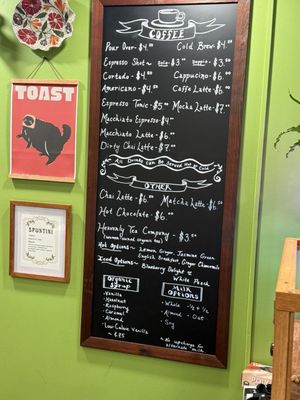 COFFEE
Pour Over - $4.00 Cold Brew - $4.
Espresso Shot ~ solo - $3.00 doppio - $3.50
Cortado - $4.00 Cappucino - $6.00
Americano - $4.00 Caffe Latte - $6.00
Espresso Tonic - $5.00 Mocha Latte - $7.
Macchiato Espresso - $4.00
Macchiato Latte - $6.00
Dirty Chai Latte - $7.
All Drinks can Be Served Hot or Cold
OTHER
Chai Latte - $6.00 Matcha Latte - $6.00
Hot Chocolate - $6.00
Heavenly Tea Company ~ $3.50
Hot Options ~ Lemon Ginger, Jasmine Green
English Breakfast, Ginger Chamomile
Iced Options ~ Blueberry Delight or
White Peach
Organic Syrup
~ Vanilla
~ Hazelnut
~ Raspberry
~ Caramel
~ Almond
~ Low-Calorie Vanilla
Milk Options
~ Whole ~ ½ + ½
~ Almond ~ Oat
~ Soy
~ No upcharge for
alternate milk
TOAST
SPUNTINI